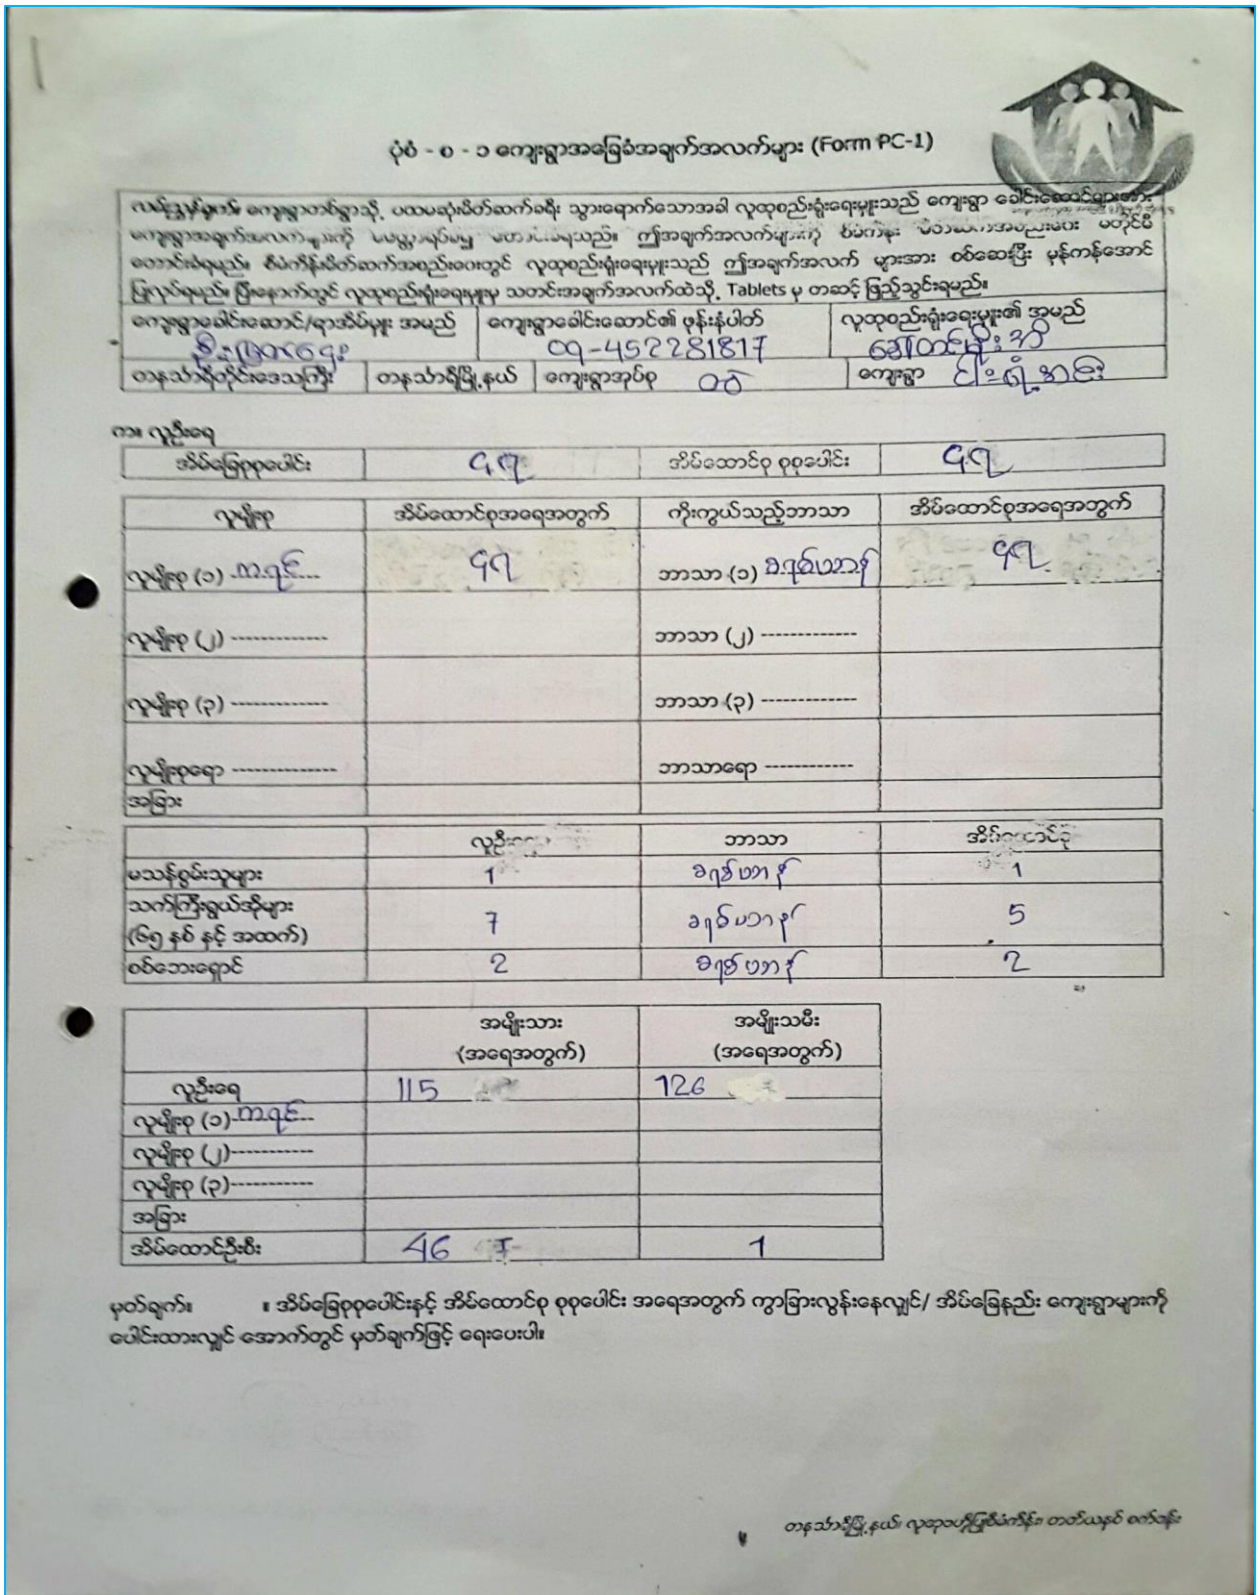 ပုံစံ - စ - ၁ ကျေးရွာအခြေခံအချက်အလက်များ (Form PC-1)
လမ်းညွှန်ချက်။ ကျေးရွာတစ်ရွာသို့ ပထမဆုံးမိတ်ဆက်ခရီး သွားရောက်သောအခါ လူထုစည်းရုံးရေးမှူးသည် ကျေးရွာ ခေါင်းဆောင်များအား
ကျေးရွာအချက်အလက်များကို မဖြစ်မနေ ကောက်ခံရမည်။ ဤအချက်အလက်များကို စီမံကိန်း မိတ်ဆက်အစည်းဝေး မတိုင်မီ
တောင်းခံရမည်။ စီမံကိန်းမိတ်ဆက်အစည်းဝေးတွင် လူထုစည်းရုံးရေးမှူးသည် ဤအချက်အလက် များအား စစ်ဆေးပြီး မှန်ကန်အောင်
ပြုလုပ်ရမည်။ ပြီးနောက်တွင် လူထုစည်းရုံးရေးမှူးမှ သတင်းအချက်အလက်ထဲသို့ Tablets မှ တဆင့် ဖြည့်သွင်းရမည်။
ကျေးရွာခေါင်းဆောင်/ရာအိမ်မှူး အမည် ကျေးရွာခေါင်းဆောင်၏ ဖုန်းနံပါတ် လူထုစည်းရုံးရေးမှူး၏ အမည်
09-452281817
တနင်္သာရီတိုင်းဒေသကြီး တနင်္သာရီမြို့နယ် ကျေးရွာအုပ်စု ကျေးရွာ
က။ လူဦးရေ
အိမ်ခြေစုစုပေါင်း ၄၇ အိမ်ထောင်စု စုစုပေါင်း ၄၇
လူမျိုးစု အိမ်ထောင်စုအရေအတွက် ကိုးကွယ်သည့်ဘာသာ အိမ်ထောင်စုအရေအတွက်
လူမျိုးစု (၁) ကရင် ၄၇ ဘာသာ (၁) ခရစ်ယာန် ၄၇
လူမျိုးစု (၂) ------------- ဘာသာ (၂) -------------
လူမျိုးစု (၃) ------------- ဘာသာ (၃) -------------
လူမျိုးစုရော -------------- ဘာသာရော ------------
အခြား
လူဦးရေ ဘာသာ အိမ်ထောင်စု
မသန်စွမ်းသူများ 1 ခရစ်ယာန် 1
သက်ကြီးရွယ်အိုများ
(၆၅ နှစ် နှင့် အထက်) 7 ခရစ်ယာန် 5
စစ်ဘေးရှောင် 2 ခရစ်ယာန် 2
အမျိုးသား အမျိုးသမီး
(အရေအတွက်) (အရေအတွက်)
လူဦးရေ 115 126
လူမျိုးစု (၁) ကရင်
လူမျိုးစု (၂)-----------
လူမျိုးစု (၃)-----------
အခြား
အိမ်ထောင်ဦးစီး 46 1
မှတ်ချက်။ ။ အိမ်ခြေစုစုပေါင်းနှင့် အိမ်ထောင်စု စုစုပေါင်း အရေအတွက် ကွာခြားလွန်းနေလျှင်/ အိမ်ခြေနည်း ကျေးရွာများကို
ပေါင်းထားလျှင် အောက်တွင် မှတ်ချက်ဖြင့် ရေးပေးပါ။
တနင်္သာရီမြို့နယ်၊ လူထုဗဟိုပြုစီမံကိန်း၊ တတိယနှစ် စက်ဝန်း